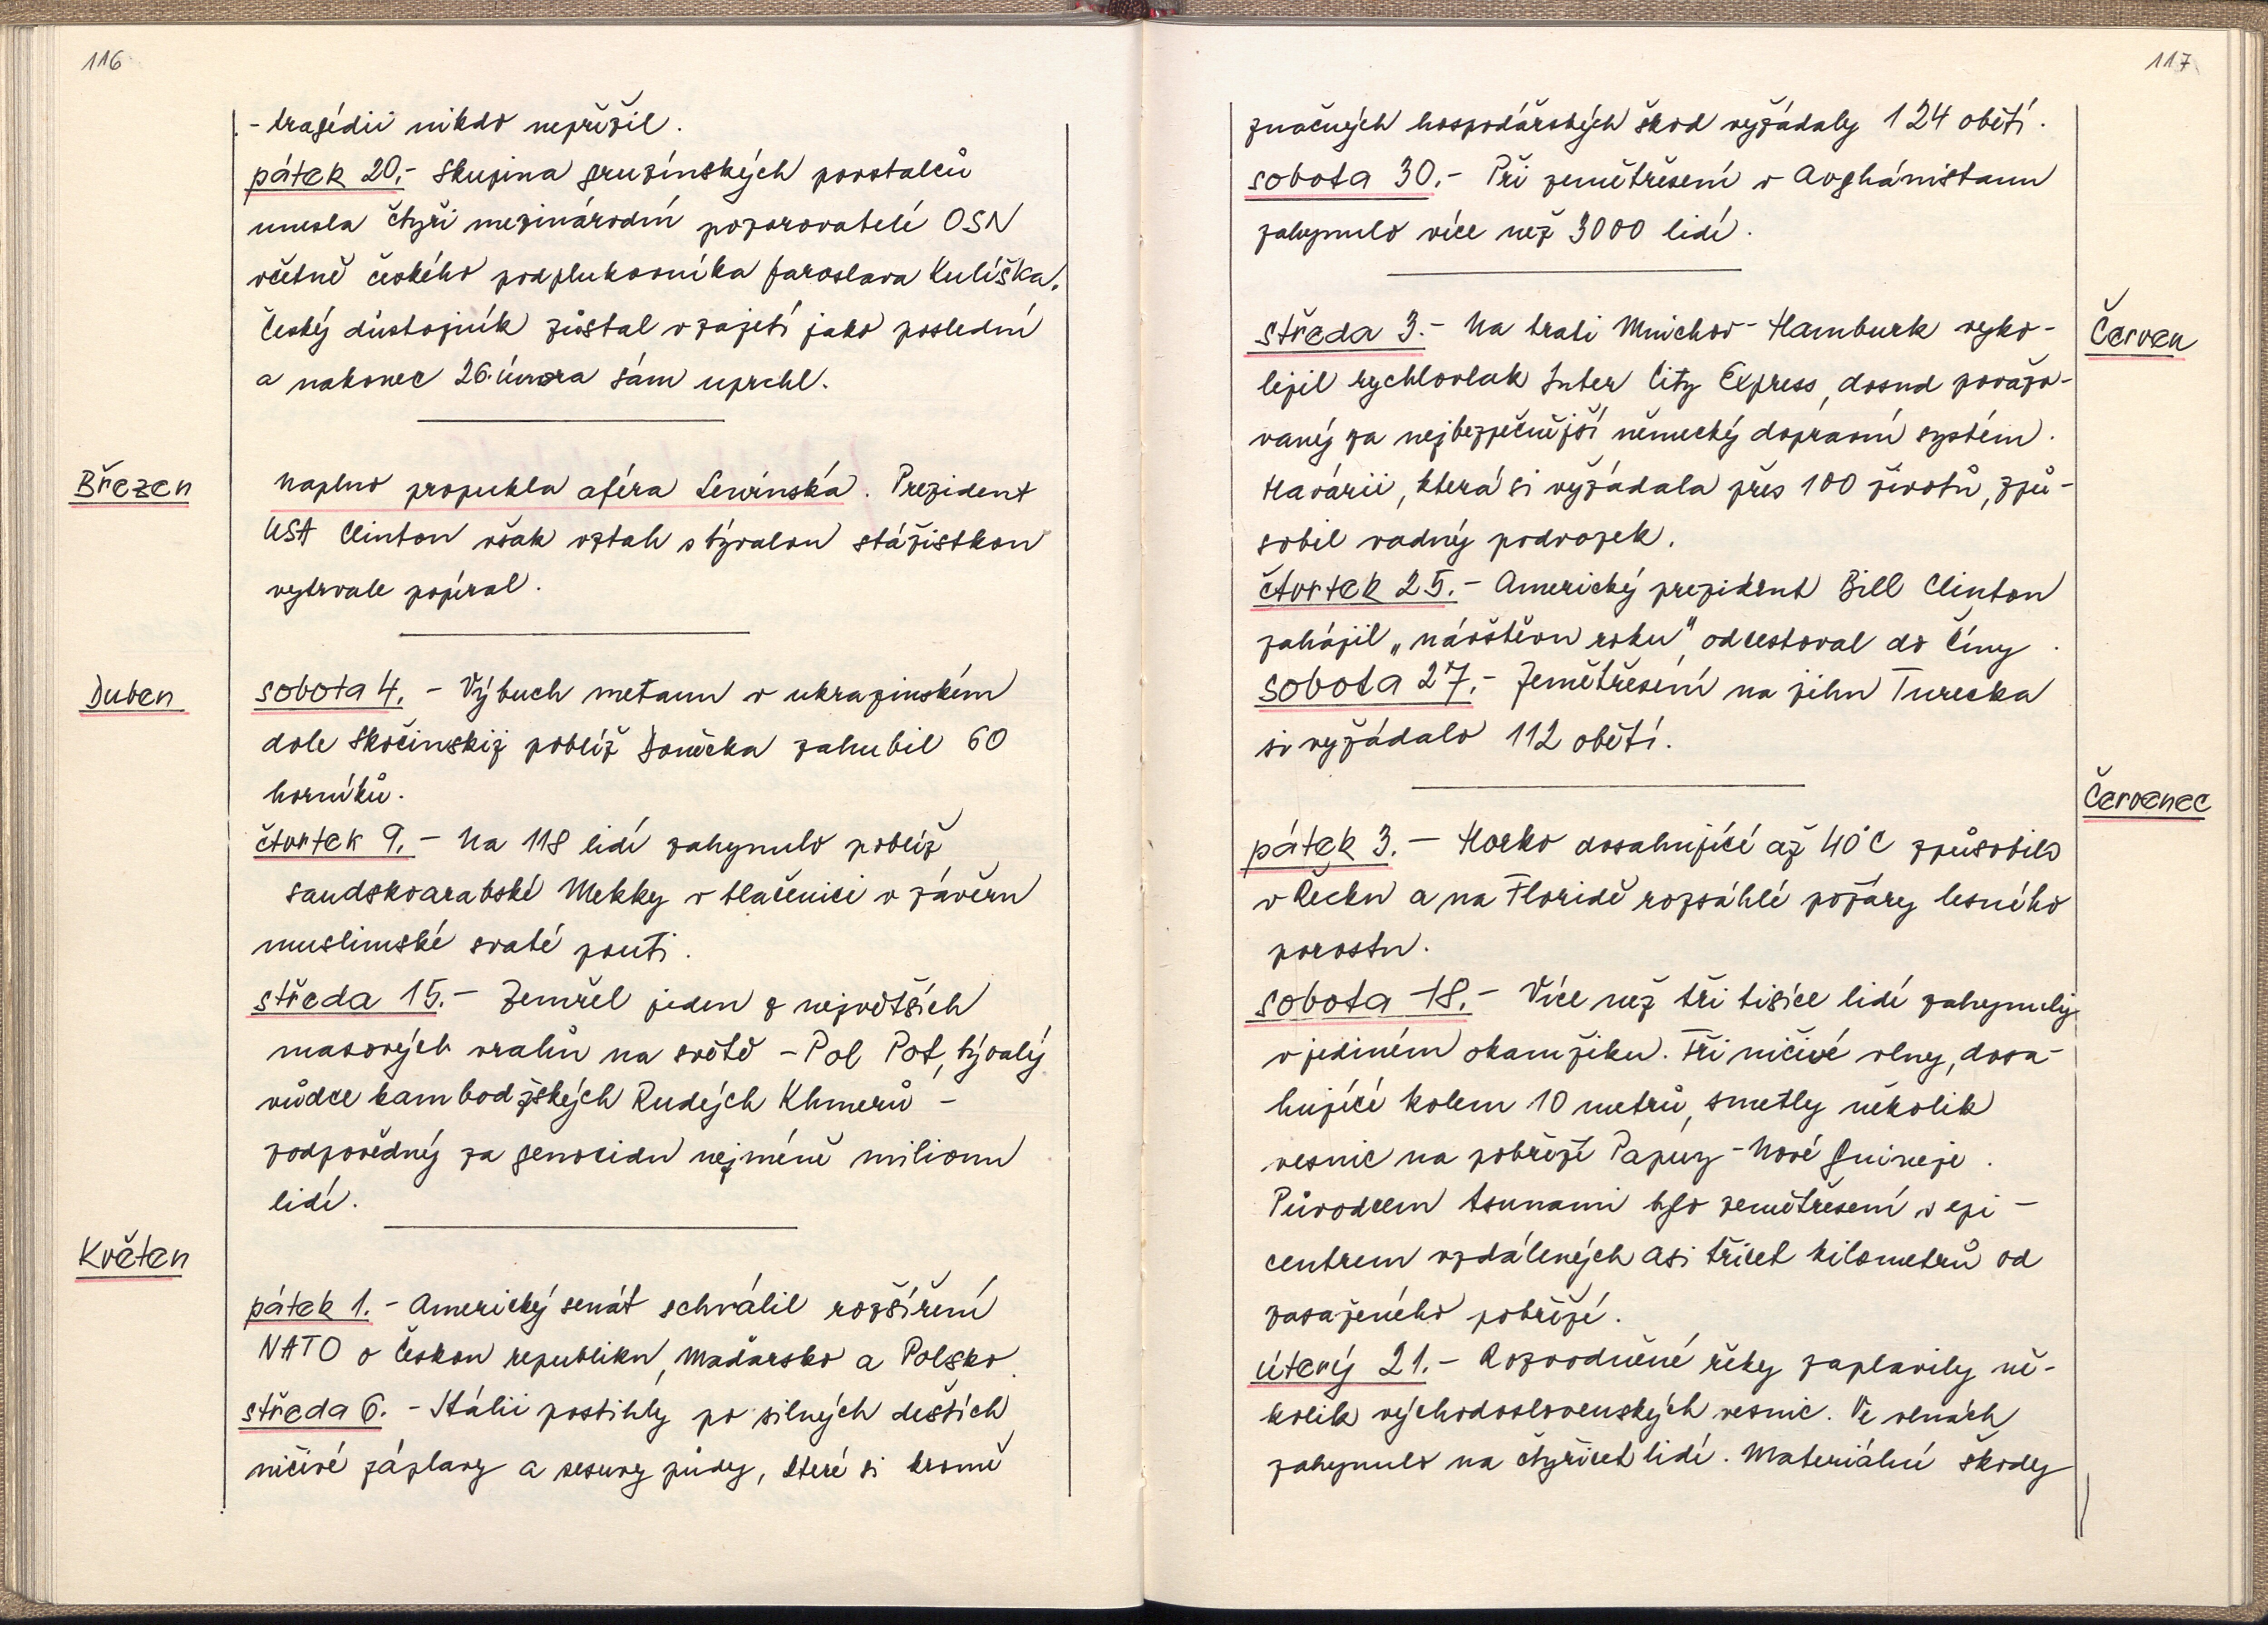 116
- tragédii nikdo nepřežil.
pátek 20.- Skupina gruzínských povstalců
unesla čtyři mezinárodní pozorovatelé OSN
včetně českého podplukovníka Jaroslava Kulíška.
Český důstojník zůstal v zajetí jako poslední
a nakonec 26. února sám uprchl.
Březen
Naplno propukla aféra Lewinská. Prezident
USA Clinton však vztah s bývalou stážistkou
vytrvale popíral.
Duben
sobota 4. - Výbuch metanu v ukrajinském
dole Skočinskij poblíž Doněcka zahubil 60
horníků.
čtvrtek 9. - Na 118 lidí zahynulo poblíž
saudskoarabské Mekky v tlačenici v závěru
muslimské svaté pouti.
středa 15. - Zemřel jeden z největších
masových vrahů na světě - Pol Pot, bývalý
vůdce kambodžských Rudých Khmerů -
zodpovědný za genocidu nejméně milionu
lidí.
Květen
pátek 1. - Americký senát schválil rozšíření
NATO o Českou republiku, Maďarsko a Polsko.
středa 6. - Itálii postihly po silných deštích
ničivé záplavy a sesuvy půdy, které si kromě
117
značných hospodářských škod vyžádaly 124 obětí.
sobota 30. - Při zemětřesení v Avghánistanu
zahynulo více než 3000 lidí.
Červen
středa 3. - Na trati Mnichov - Hamburk vyko-
lejil rychlovlak Inter City Express, dosud považo-
vaný za nejbezpečnější německý dopravní systém.
Havárii, která si vyžádala přes 100 životů, způ-
sobil vadný podvozek.
čtvrtek 25. - Americký prezident Bill Clinton
zahájil „návštěvu roku", odcestoval do Číny.
sobota 27. - Zemětřesení na jihu Turecka
si vyžádalo 112 obětí.
Červenec
pátek 3. - Horko dosahující až 40°C způsobilo
v Řecku a na Floridě rozsáhlé požáry lesního
porostu.
sobota 18. - Více než tři tisíce lidí zahynuly
v jediném okamžiku. Tři ničivé vlny, dosa-
hující kolem 10 metrů, smetly několik
vesnic na pobřeží Papuy - Nové Guineje.
Původcem tsunami bylo zemětřesení s epi-
centrem vzdálených asi třicet kilometrů od
zasaženého pobřeží.
úterý 21. - Rozvodněné řeky zaplavily ně-
kolik východoslovenských vesnic. Ve vlnách
zahynulo na čtyřicet lidí. Materiální škody